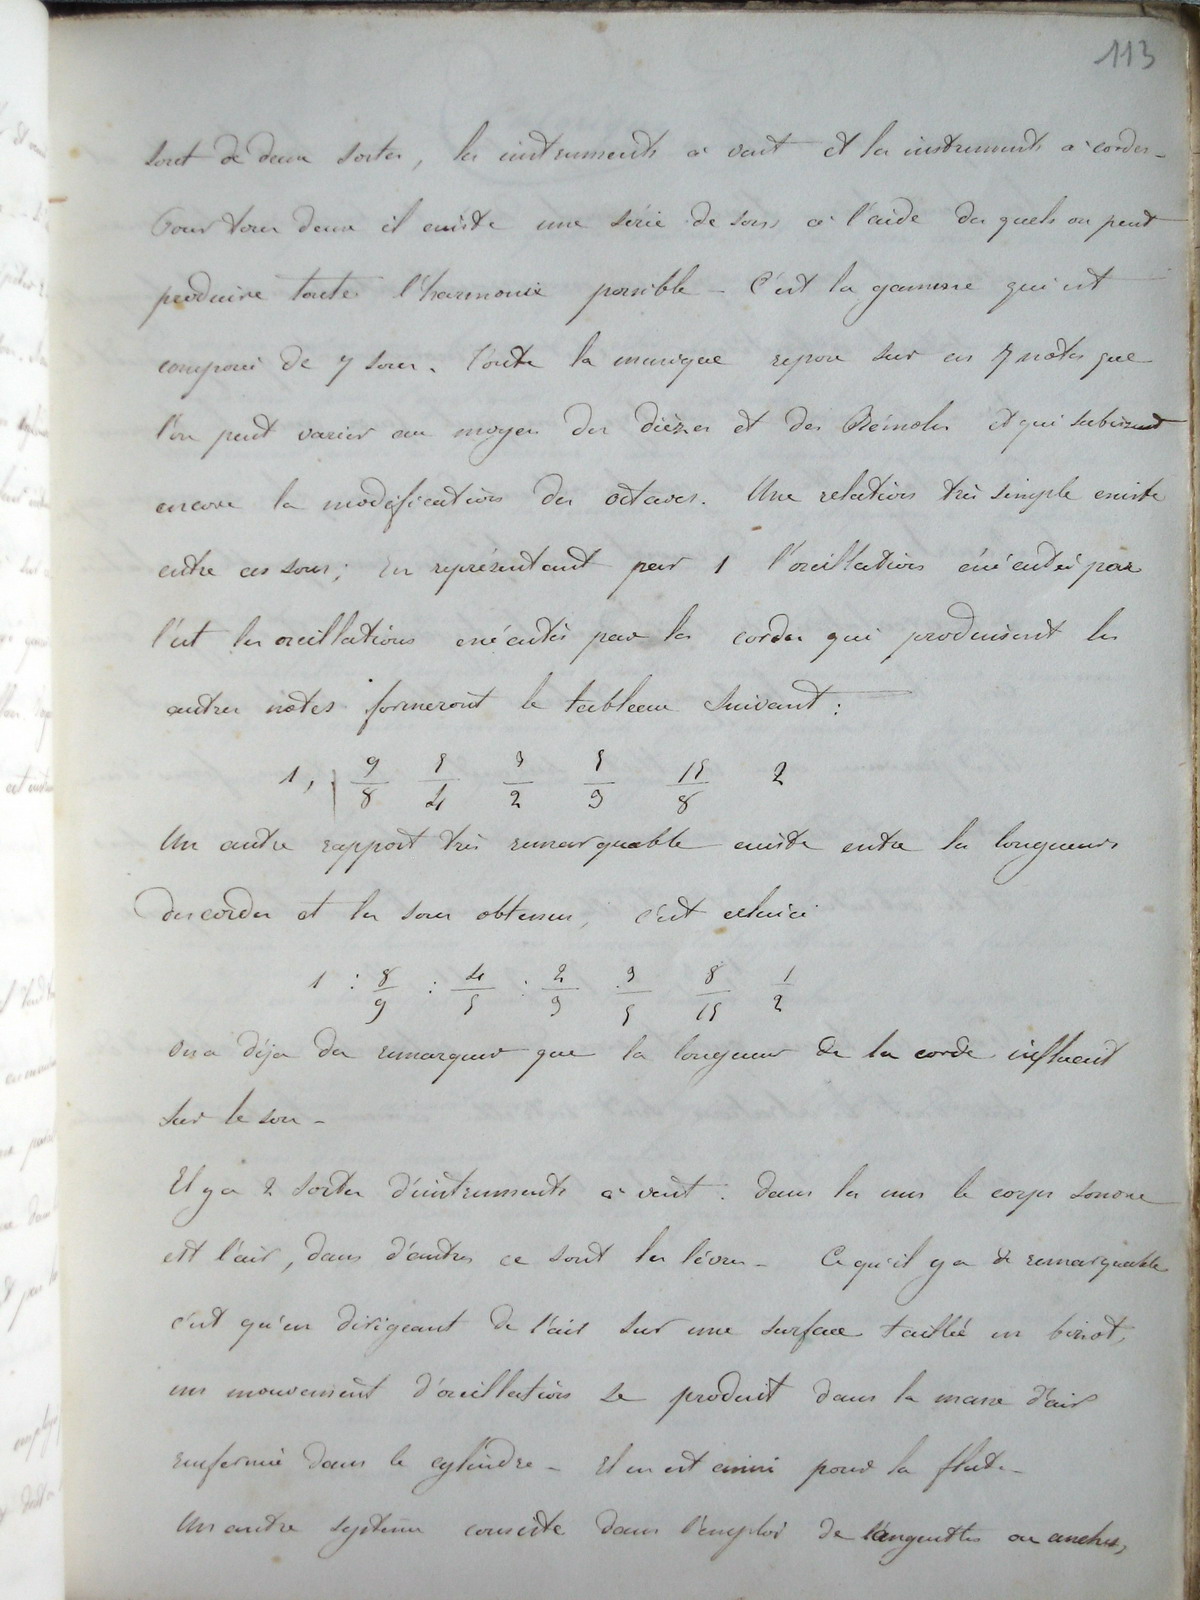 113
sont de deux sortes, les instruments à vent et les instruments à cordes -
Pour tous deux il existe une série de sons à l'aide des quels on peut
produire toute l'harmonie possible - C'est la gamme qui est
composée de 7 sons. Toute la musique repose sur ces 7 notes que
l'on peut varier au moyen des dièzes et des Bémols et qui subissent
encore la modification des octaves. Une relation très simple existe
entre ces sons; en représentant par 1 l'oscillation éxécutée par
l'ut les oscillations exécutés par les cordes qui produisent les
autres notes formeront le tableau suivant :
1, 9/8 5/4 3/2 5/3 15/8 2
Un autre rapport très remarquable existe entre la longueur
des cordes et les sons obtenus, c'est celui ci
1 : 8/9 : 4/5 : 2/3 3/5 8/15 1/2
On a déja du remarquer que la longueur de la corde influent
sur le son -
Il y a 2 sortes d'instruments à vent : dans les uns le corps sonore
est l'air, dans d'autres ce sont les lèvres - Ce qu'il y a de remarquable
c'est qu'en dirigeant de l'air sur une surface taillée en bizot,
un mouvement d'oscillation se produit dans la masse d'air
enfermée dans le cylindre - Il en est ainsi pour la flute -
Un autre système consiste dans l'emploi de languettes ou anches,